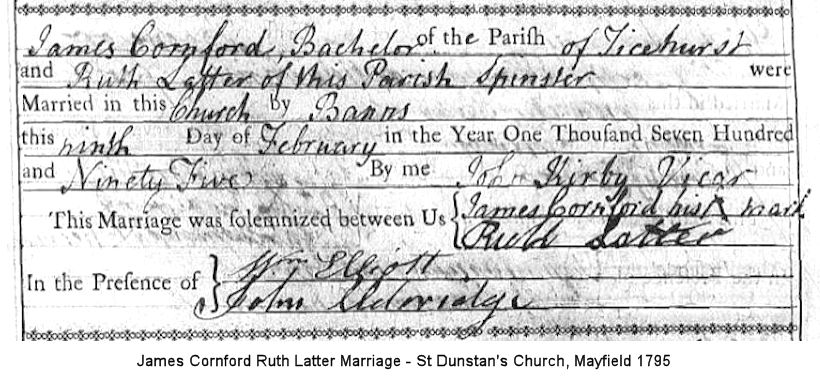 James Cornford, Bachelor of the Pariſh of Ticehurst
and Ruth Latter of this Parish Spinster were
Married in this Church by Banns
this ninth Day of February in the Year One Thouſand Seven Hundred
and Ninety Five By me Joh Kirby Vicar
This Marriage was ſolemnized between Us { James Cornford his X mark
Ruth Latter
In the Preſence of } Wm Elliott
John Aldridge
James Cornford Ruth Latter Marriage - St Dunstan's Church, Mayfield 1795